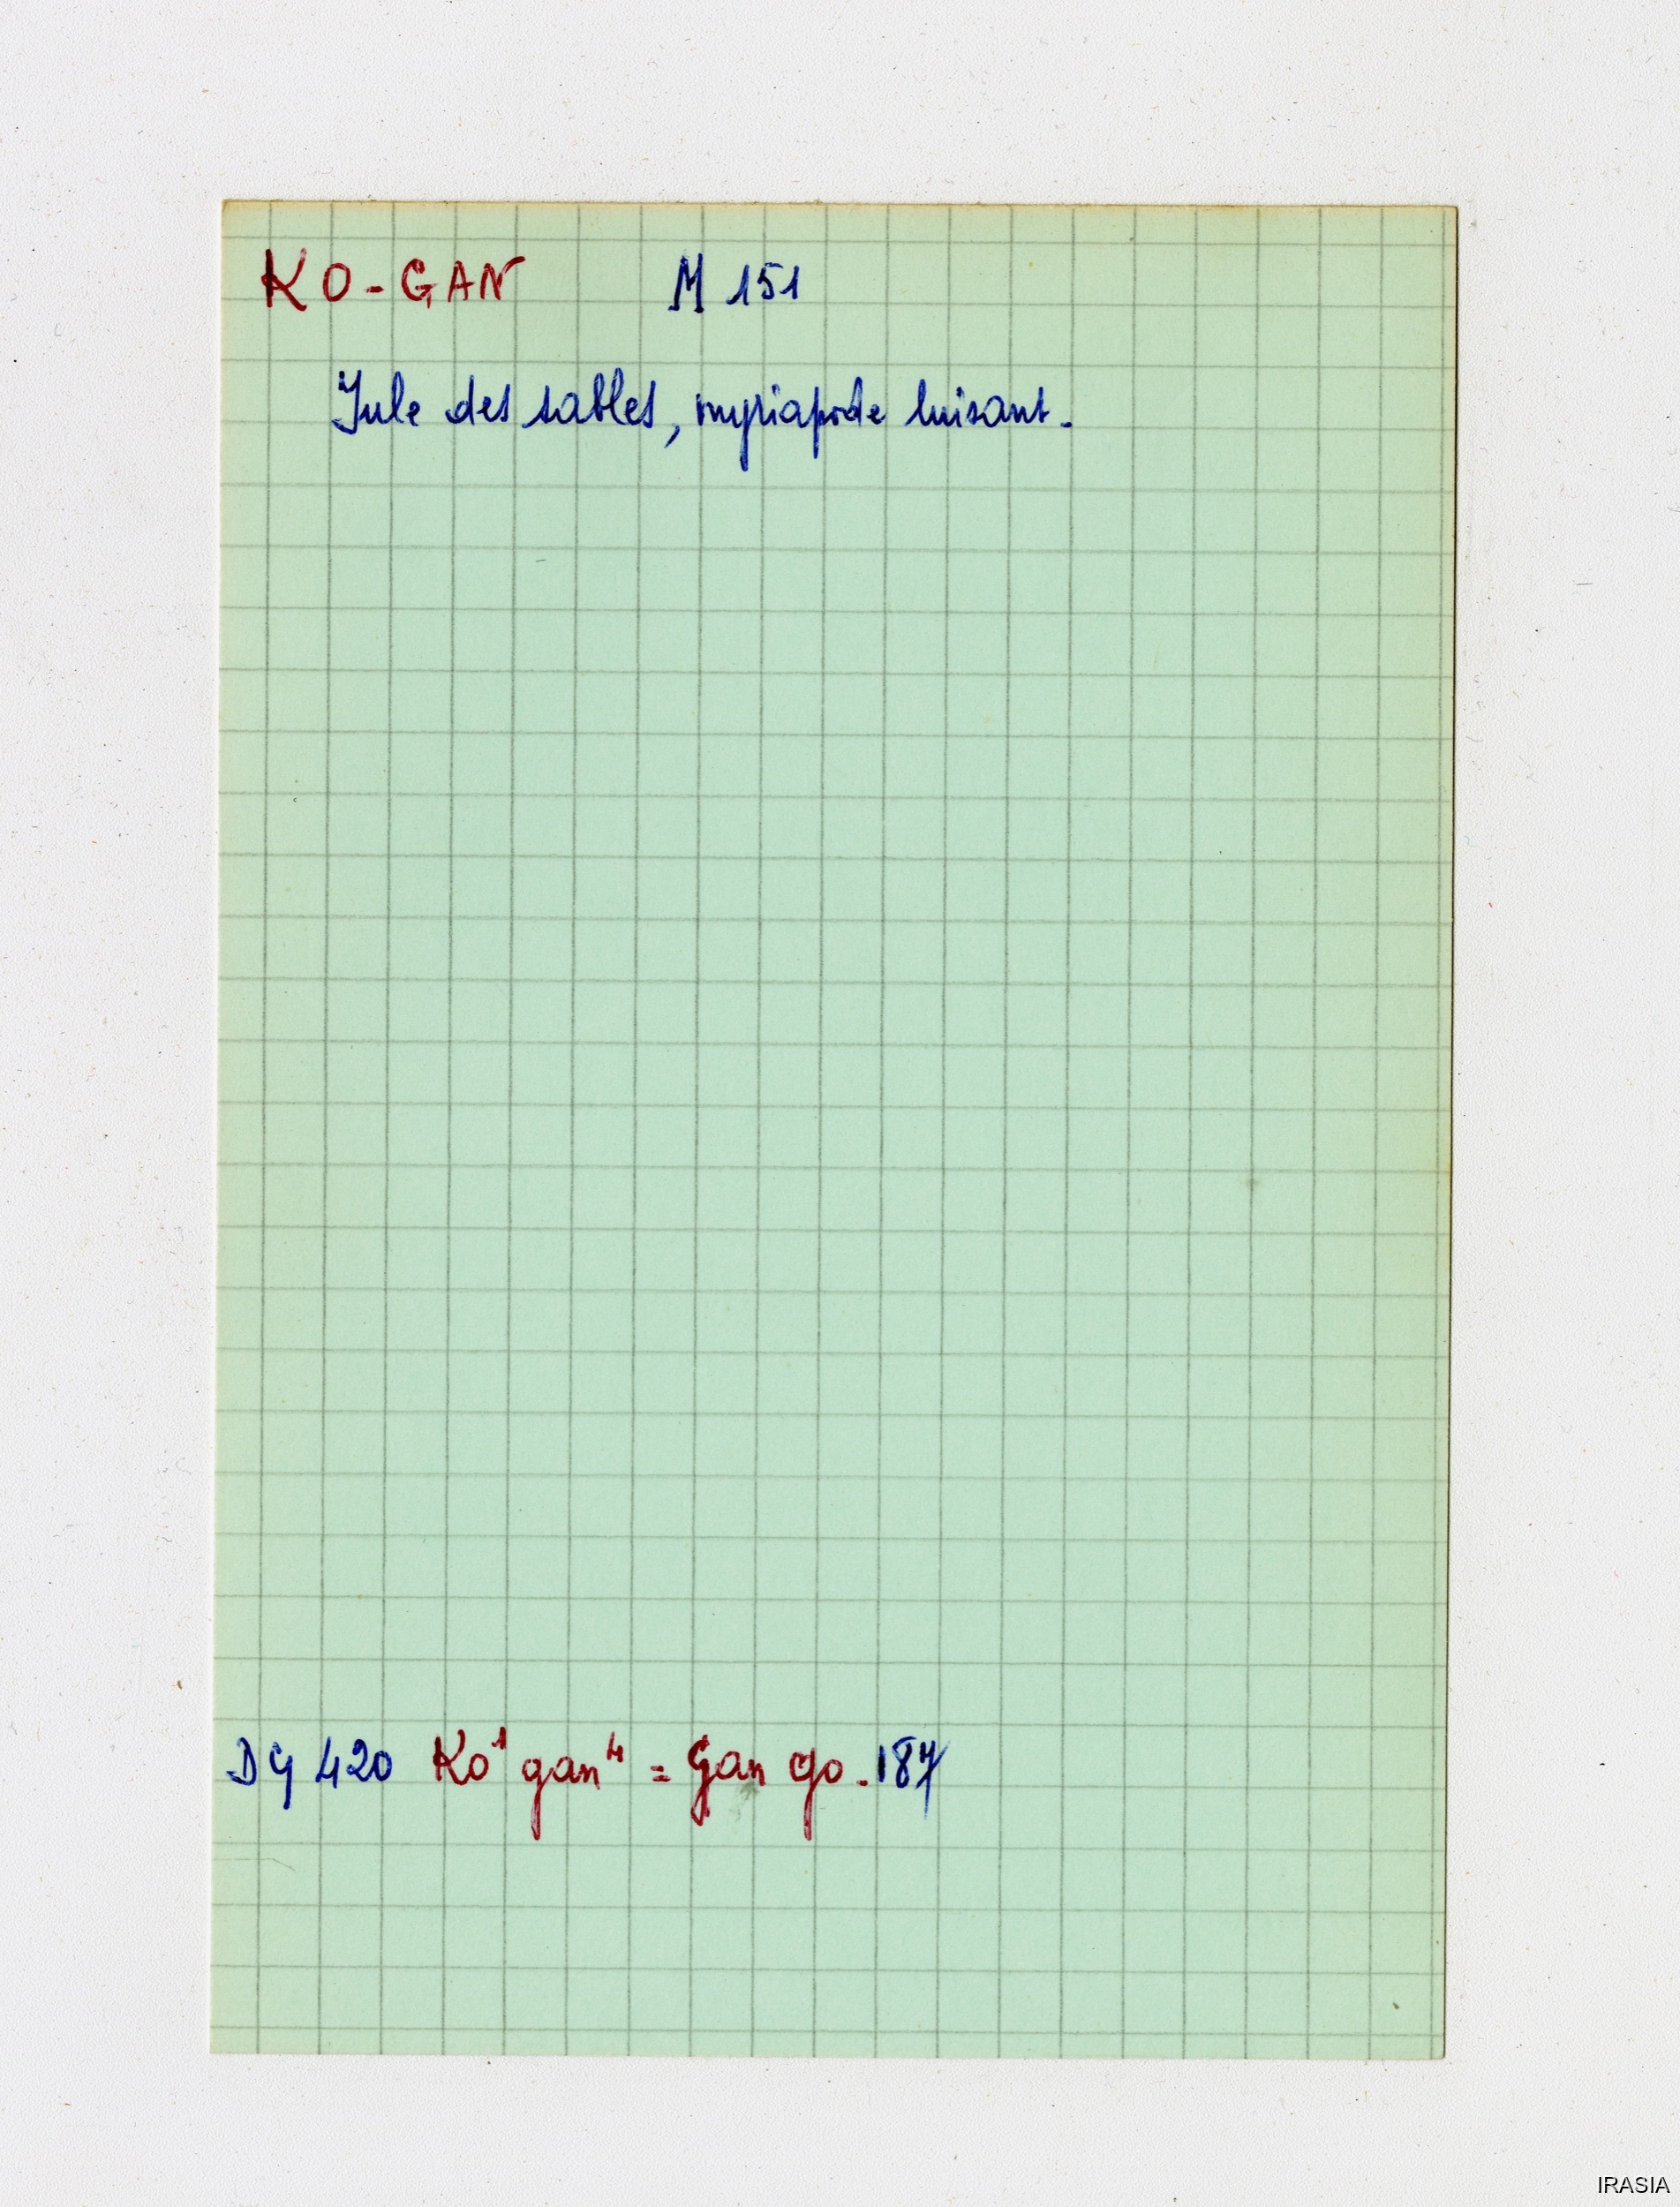 KO-GAN M 151
Iule des sables, myriapode luisant.
DG 420 Ko¹ gan⁴ = Gan go. 187
IRASIA